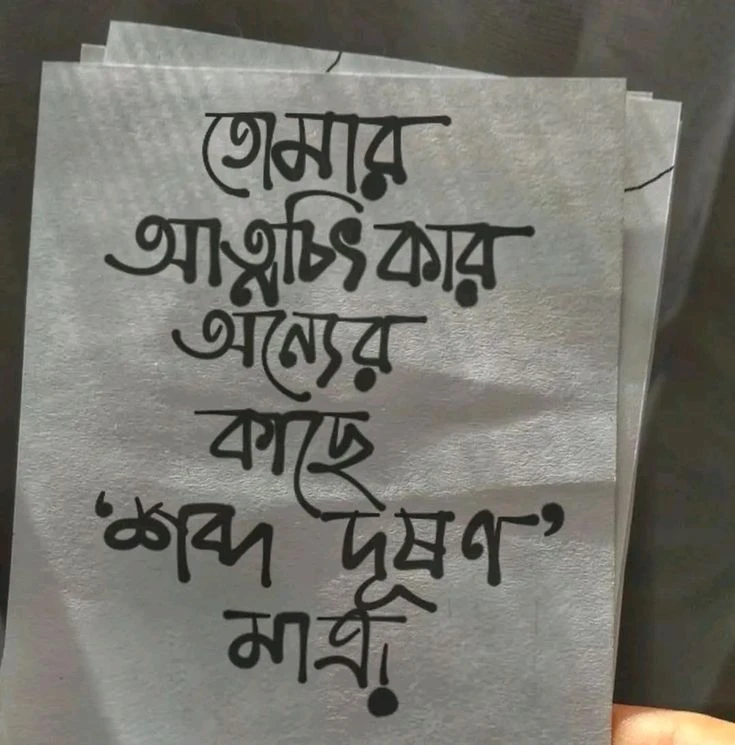 তোমার
আত্নচিৎকার
অন্যের
কাছে
‘শব্দ দূষণ’
মাত্র!